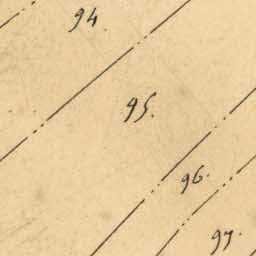 94.
95.
96.
97.